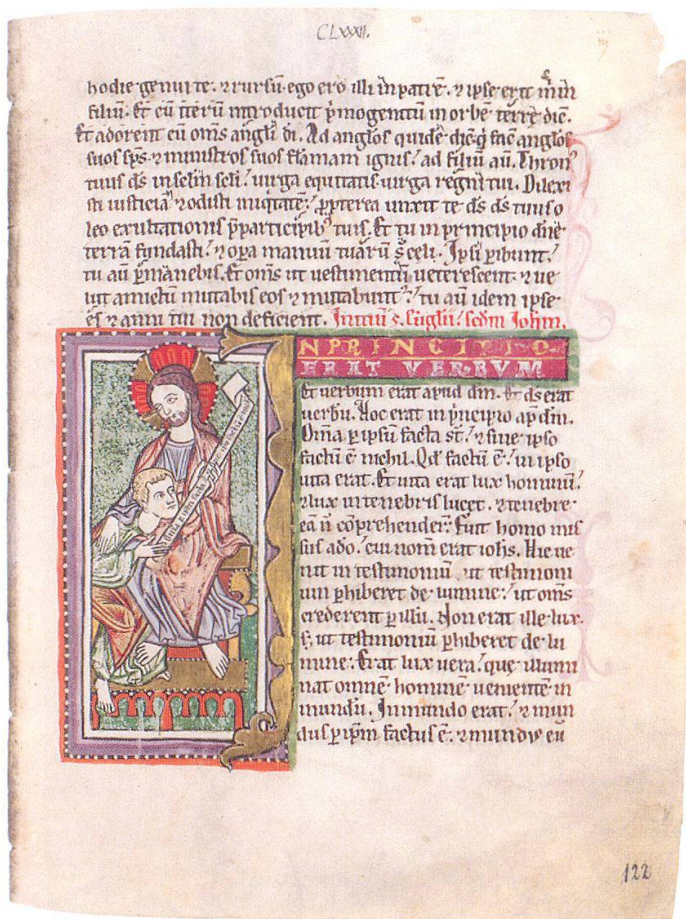 CLXXXII.
hodie genui te. ⁊ rursū ego ero illi in patrē. ⁊ ipse erit m in
filiū. Et cū iterū introducit p̄mogenitū in orbē terrę dic̄.
Et adorent eū om̄s angl̄i di. Ad angl̄os quidē dic̄. q̇ fac̄ angl̄os
suos sp̄s. ⁊ ministros suos flāmam ignis. ad filiū aū. Thron᷒
tuus d̄s in sclm̄ scl̄i. uirga equitatis uirga regni tui. Dilexi
sti iusticiā ⁊ odisti iniq̇tatē. ꝓpterea unxit te d̄s d̄s tuus o
leo exultationis p̄ participib᷒ tuis. Et tu in principio dn̄e
terrā fundasti. ⁊ oꝑa manuū tuarū s̄ celi. Ipsi ꝑibunt.
tu aū ꝑmanebis. Et om̄s ut uestimentū ueterescent. ⁊ ue
lut amictū mutabis eos ⁊ mutabunt᷒. tu aū idem ipse
es ⁊ anni tui non deficient. Initiū s. euglīi. scdm Iohm.
IN PRINCIPIO
ERAT VERBVM
Et uerbum erat apud dm̄. Et d̄s erat
uerbū. Hoc erat in p̄ncipio ap̄ dm̄.
Om̄a ꝑ ipsū facta st̄. ⁊ sine ipso
factū ē nichil. Qd̄ factū ē. in ipso
uita erat. Et uita erat lux hominū.
⁊ lux in tenebris lucet. ⁊ tenebrę
eā n̄ cōprehender̄. Fuit homo mis
sus a do. cui nom̄ erat iohs. Hic ue
nit in testimoniū. ut testimoni
um ꝑhiberet de lumine. ut om̄s
crederent ꝑ illū. Non erat ille lux.
s; ut testimoniū ꝑhiberet de lu
mine. Erat lux uera. quę illumi
nat omnē hominē uenientē in
mundū. In mundo erat. ⁊ mun
dus ꝑ ipm̄ factus ē. ⁊ mundus eū
122